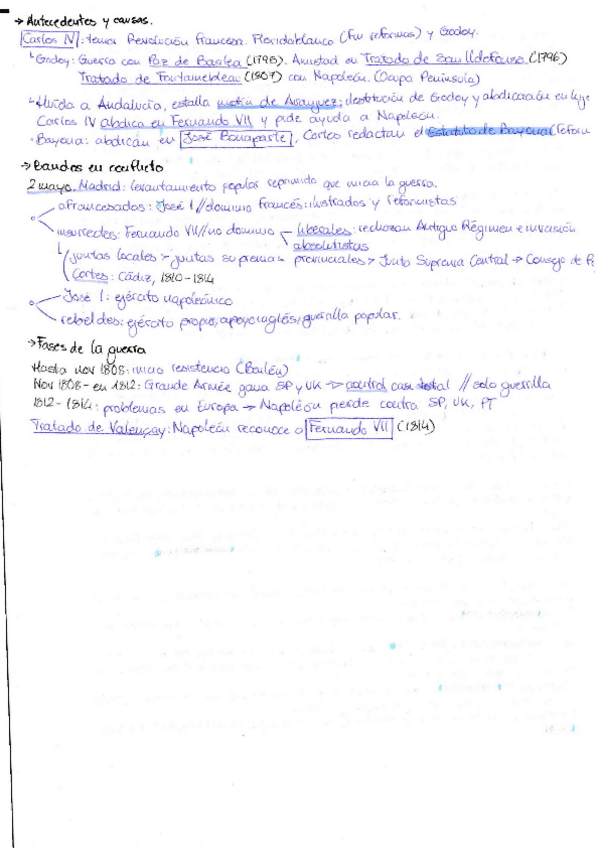 → Antecedentes y causas.
Carlos IV: temor Revolución Francesa. Floridablanca (fin reformas) y Godoy.
Godoy: Guerra con Paz de Basilea (1795). Amistad en Tratado de San Ildefonso (1796)
Tratado de Fontainebleau (1807) con Napoleón. (Ocupa Península)
Huida a Andalucía, estalla motín de Aranjuez: destitución de Godoy y abdicación en
Carlos IV abdica en Fernando VII y pide ayuda a Napoleón.
Bayona: abdican en José Bonaparte, Cortes redactan el Estatuto de Bayona (reform
→ Bandos en conflicto
2 mayo. Madrid: levantamiento popular reprimido que inicia la guerra.
afrancesados: José I // dominio francés: ilustrados y reformistas
insurrectos: Fernando VII // no dominio liberales: rechazan Antiguo Régimen e invasión
absolutistas
juntas locales > juntas supremas provinciales > Junta Suprema Central → Consejo de R
Cortes: Cádiz, 1810-1814
José I: ejército napoleónico
rebeldes: ejército propio, apoyo inglés, guerrilla popular.
→ Fases de la guerra
Hasta nov 1808: inicio resistencia (Bailén)
Nov 1808 - en 1812: Grande Armée gana SP y UK → control casi total // solo guerrilla
1812 - 1814: problemas en Europa → Napoleón pierde contra SP, UK, PT
Tratado de Valençay: Napoleón reconoce a Fernando VII (1814)